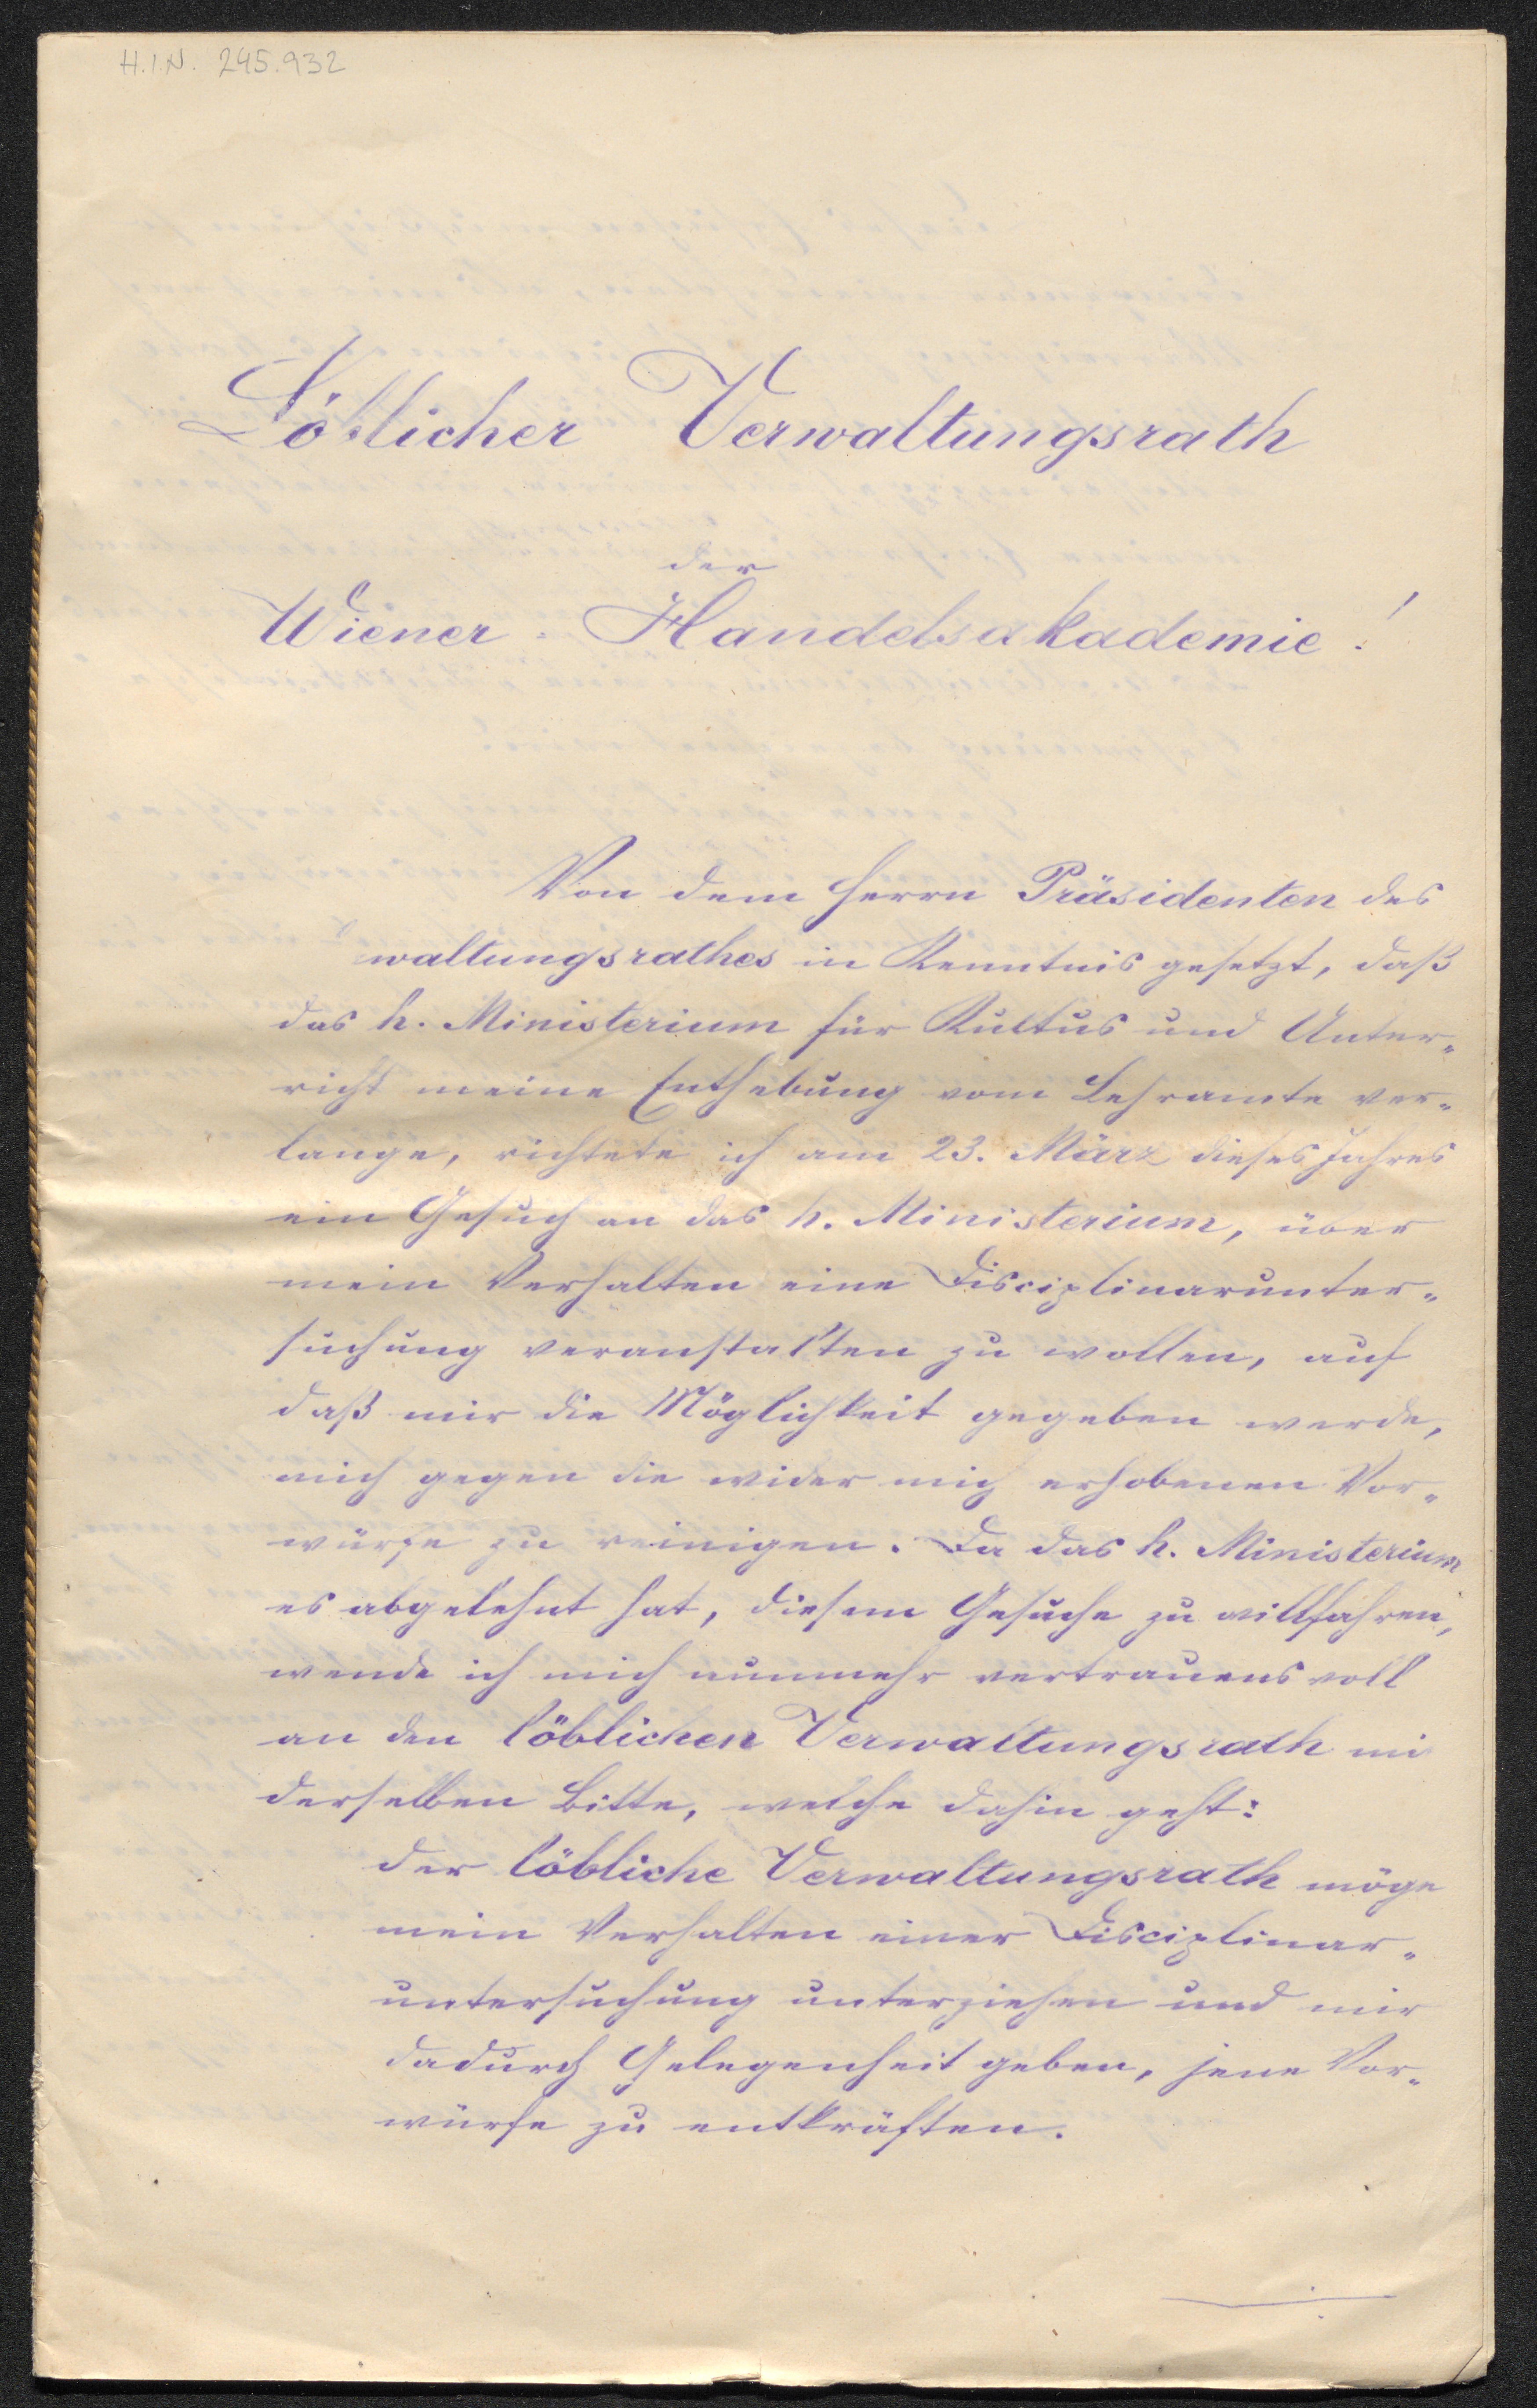 H.I.N. 245.932
Löblicher Verwaltungsrath
der
Wiener - Handelsakademie!
Von dem Herrn Präsidenten des
waltungsrathes in Kenntnis gesetzt, daß
das h. Ministerium für Kultus und Unter-
richt meine Enthebung vom Lehramte ver-
lange, richtete ich am 23. März dieses Jahres
ein Gesuch an das h. Ministerium, über
mein Verhalten eine Disciplinarunter-
suchung veranstalten zu wollen, auf
daß mir die Möglichkeit gegeben werde,
mich gegen die wider mich erhobenen Vor-
würfe zu reinigen. Da das h. Ministerium
es abgelehnt hat, diesem Gesuche zu willfahren,
wende ich mich nunmehr vertrauensvoll
an den löblichen Verwaltungsrath mi
derselben Bitte, welche dahin geht:
der löbliche Verwaltungsrath möge
mein Verhalten einer Disciplinar-
untersuchung unterziehen und mir
dadurch Gelegenheit geben, jene Vor-
würfe zu entkräften.